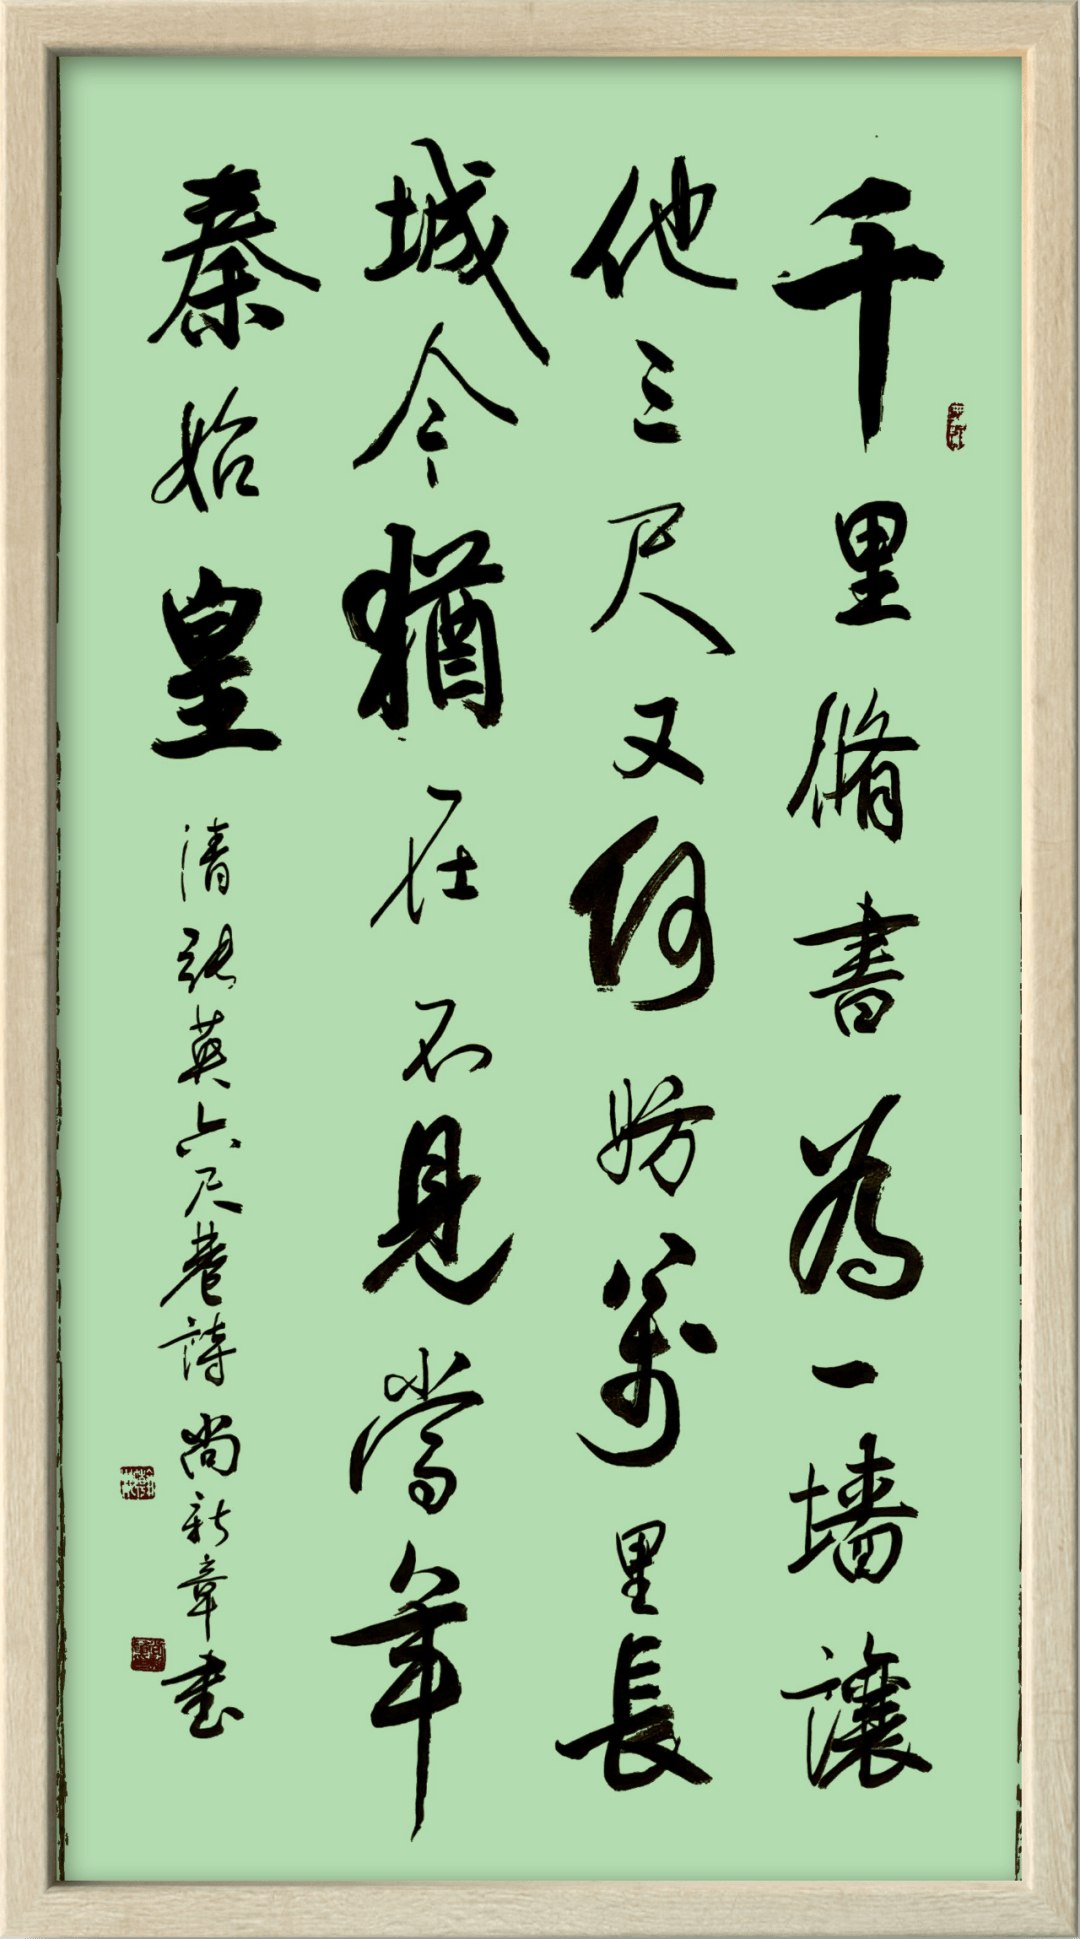 千里脩書為一墙讓
他三尺又何妨萬里長
城今猶在不見當年
秦始皇
清張英六尺巷詩 尚新章書